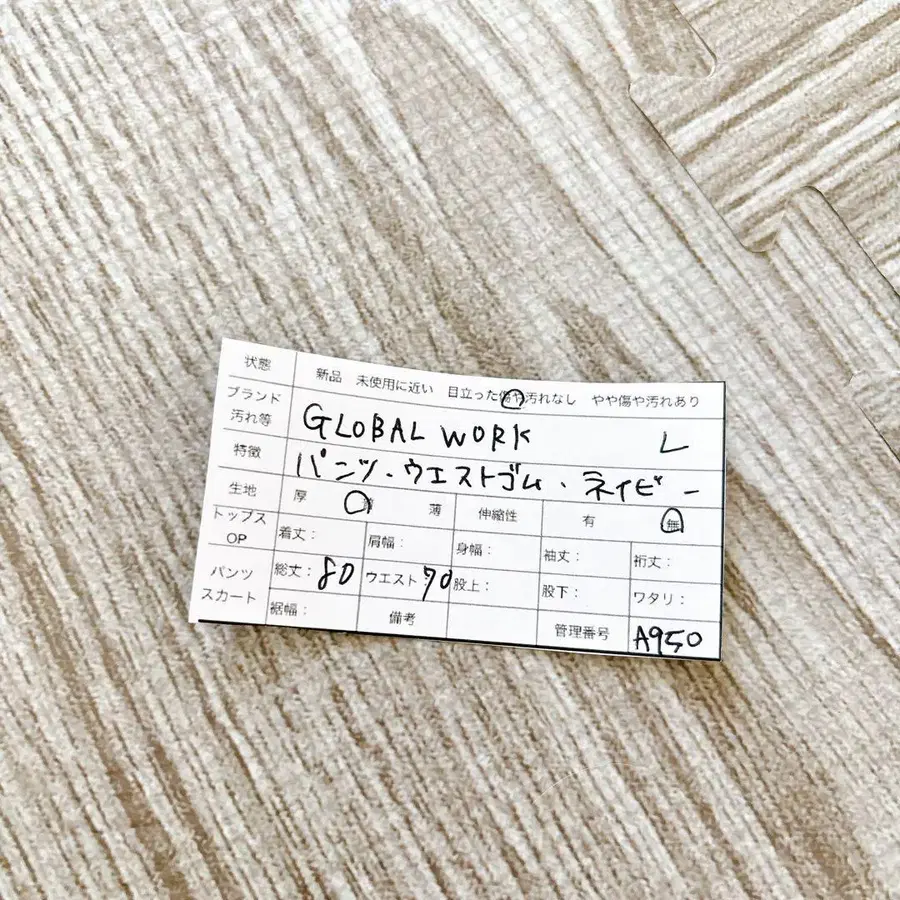 状態 新品 未使用に近い 目立った傷や汚れなし やや傷や汚れあり
ブランド
汚れ等 GLOBAL WORK L
特徴 パンツ・ウエストゴム・ネイビー
生地 厚 薄 伸縮性 有 無
トップス
OP 着丈: 肩幅: 身幅: 袖丈: 裄丈:
パンツ
スカート 総丈:80 ウエスト:70 股上: 股下: ワタリ:
裾幅: 備考 管理番号 A950